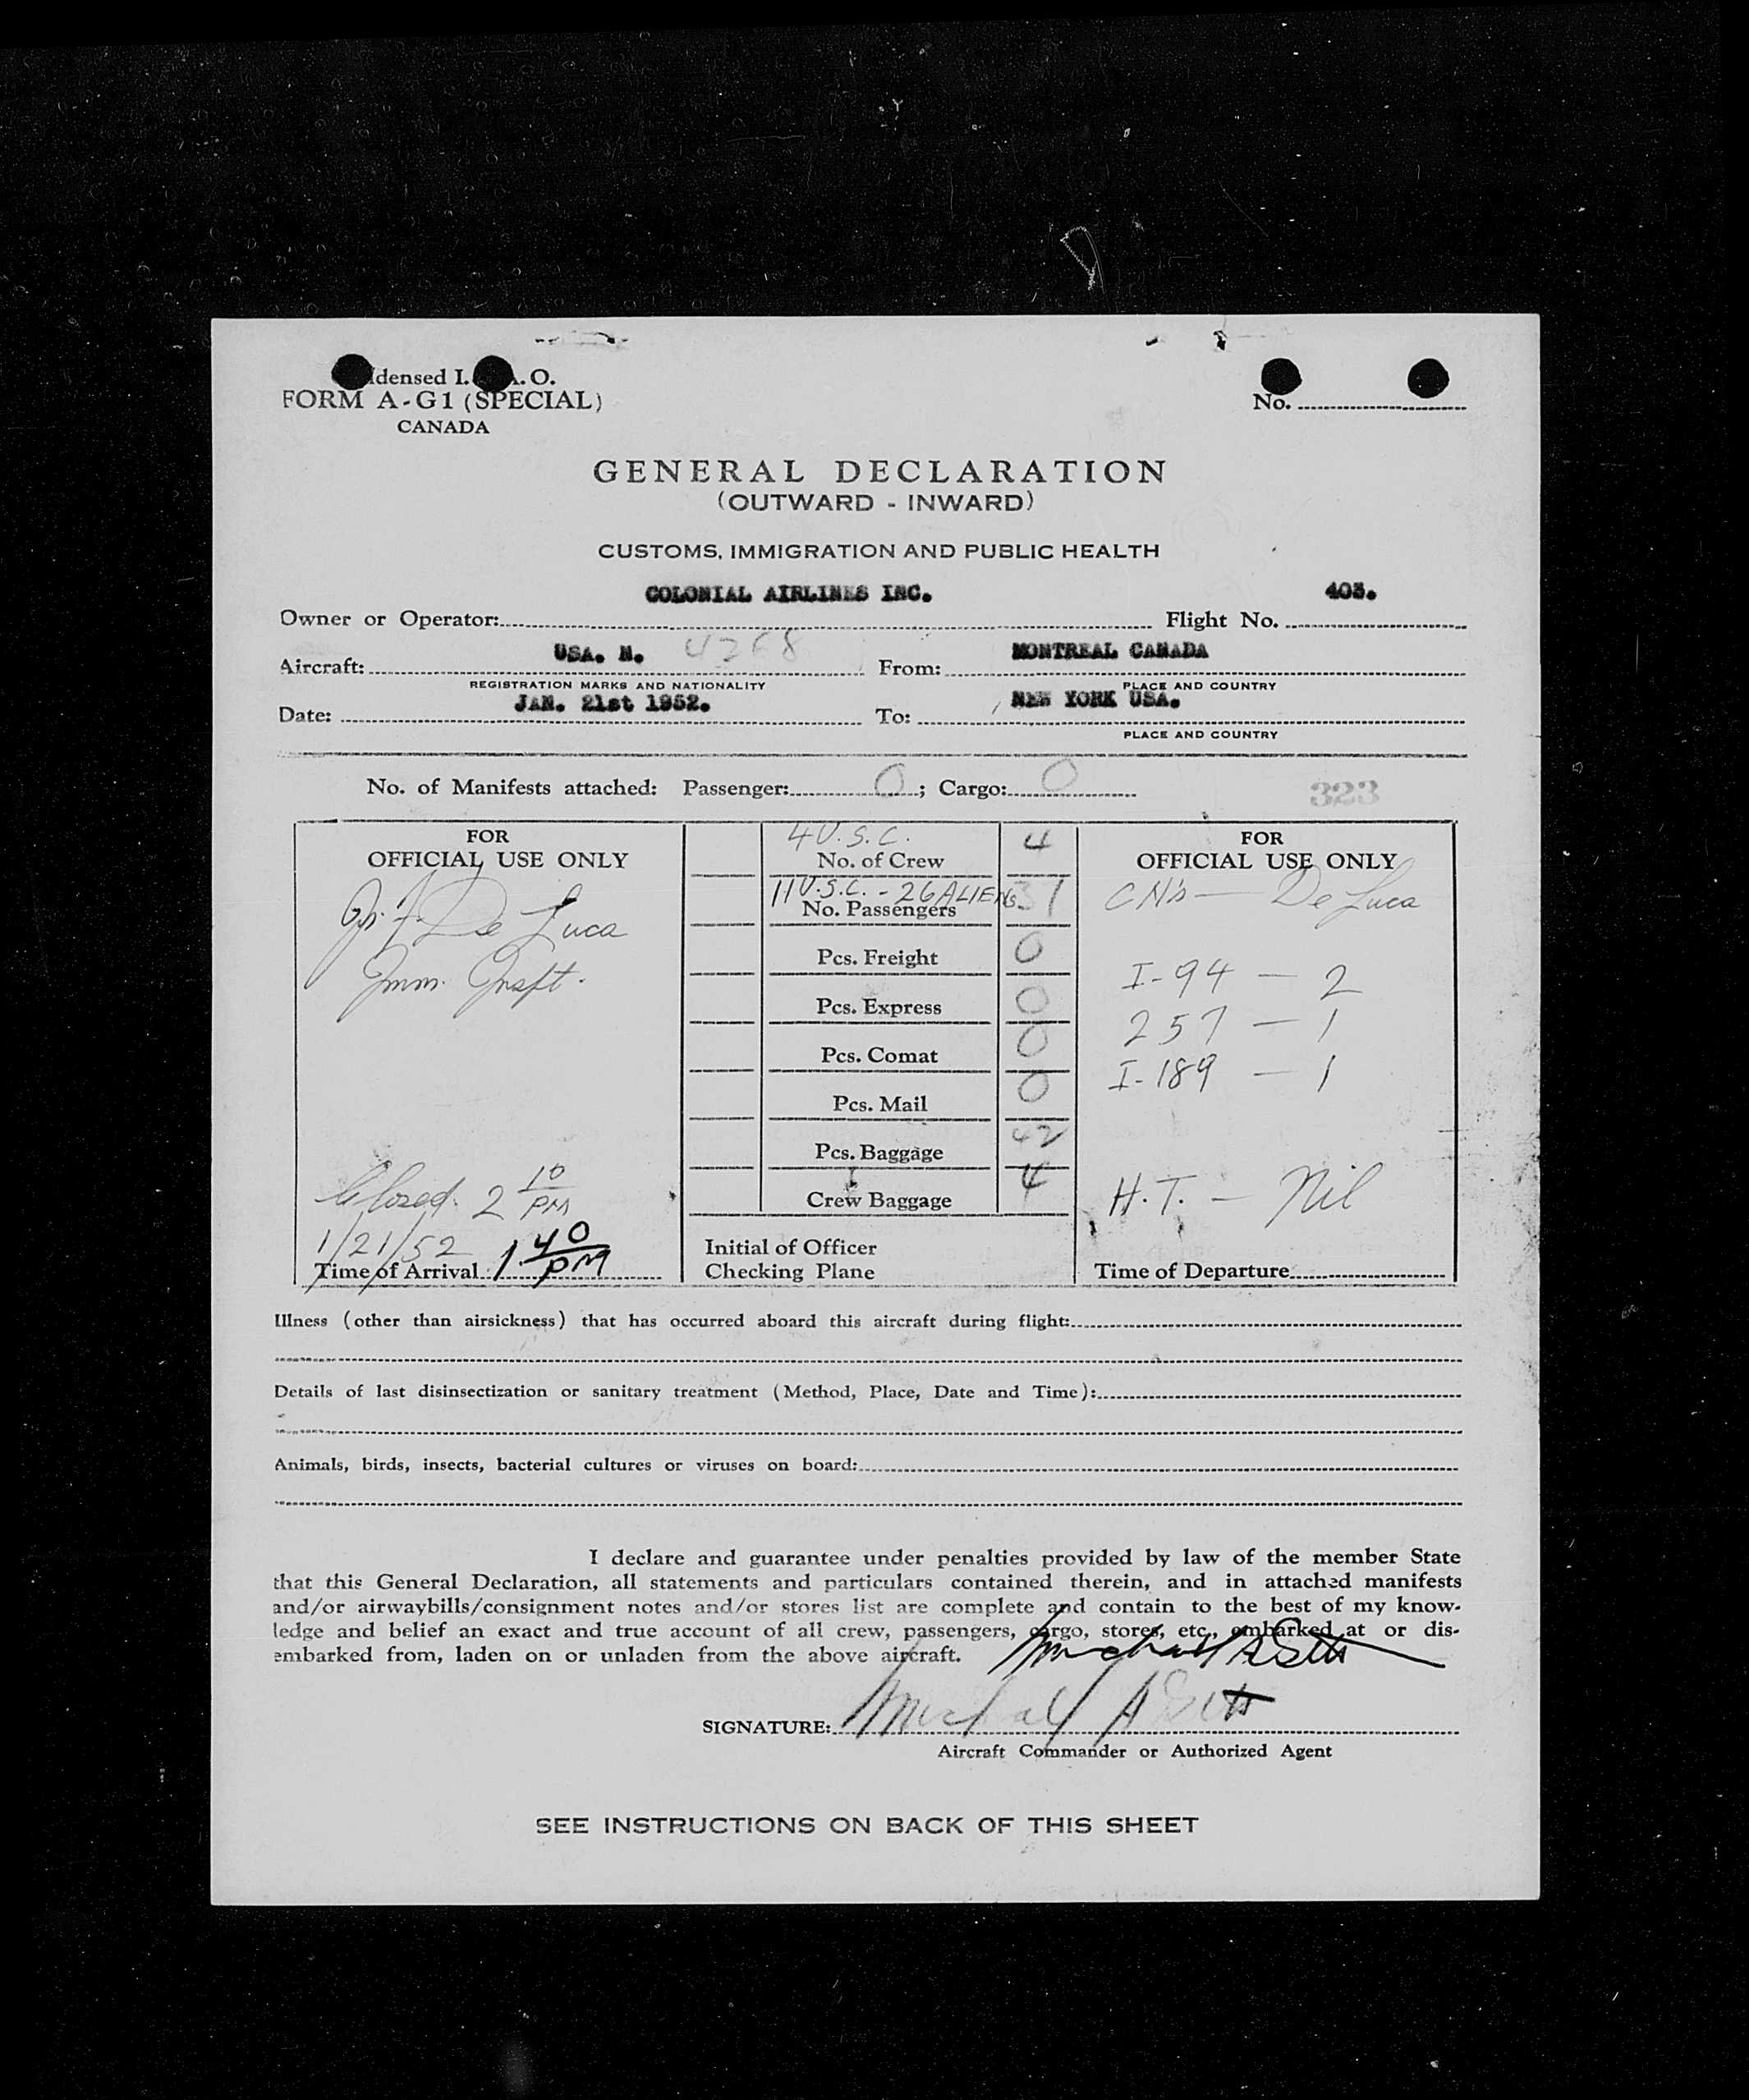 densed I. A. O.
FORM A-G1 (SPECIAL)
CANADA
No.
GENERAL DECLARATION
(OUTWARD - INWARD)
CUSTOMS, IMMIGRATION AND PUBLIC HEALTH
Owner or Operator: COLONIAL AIRLINES INC. Flight No. 403.
Aircraft: USA. N. 4268 From: MONTREAL CANADA
REGISTRATION MARKS AND NATIONALITY PLACE AND COUNTRY
Date: JAN. 21st 1952. To: NEW YORK USA.
PLACE AND COUNTRY
No. of Manifests attached: Passenger: 0; Cargo: 0
323
FOR
OFFICIAL USE ONLY
De Luca
Imm. Inspt.
Closed 2 10 PM
1/21/52
Time of Arrival 1 40 PM
4 U.S.C.
No. of Crew 4
11 U.S.C. - 26 ALIENS
No. Passengers 37
Pcs. Freight 0
Pcs. Express 0
Pcs. Comat 0
Pcs. Mail 0
Pcs. Baggage 42
Crew Baggage 4
Initial of Officer
Checking Plane
FOR
OFFICIAL USE ONLY
CN's — De Luca
I-94 — 2
257 — 1
I-189 — 1
H.T. — Nil
Time of Departure
Illness (other than airsickness) that has occurred aboard this aircraft during flight:
Details of last disinsectization or sanitary treatment (Method, Place, Date and Time):
Animals, birds, insects, bacterial cultures or viruses on board:
I declare and guarantee under penalties provided by law of the member State
that this General Declaration, all statements and particulars contained therein, and in attached manifests
and/or airwaybills/consignment notes and/or stores list are complete and contain to the best of my know-
ledge and belief an exact and true account of all crew, passengers, cargo, stores, etc., embarked at or dis-
embarked from, laden on or unladen from the above aircraft.
SIGNATURE: Michael A
Aircraft Commander or Authorized Agent
SEE INSTRUCTIONS ON BACK OF THIS SHEET